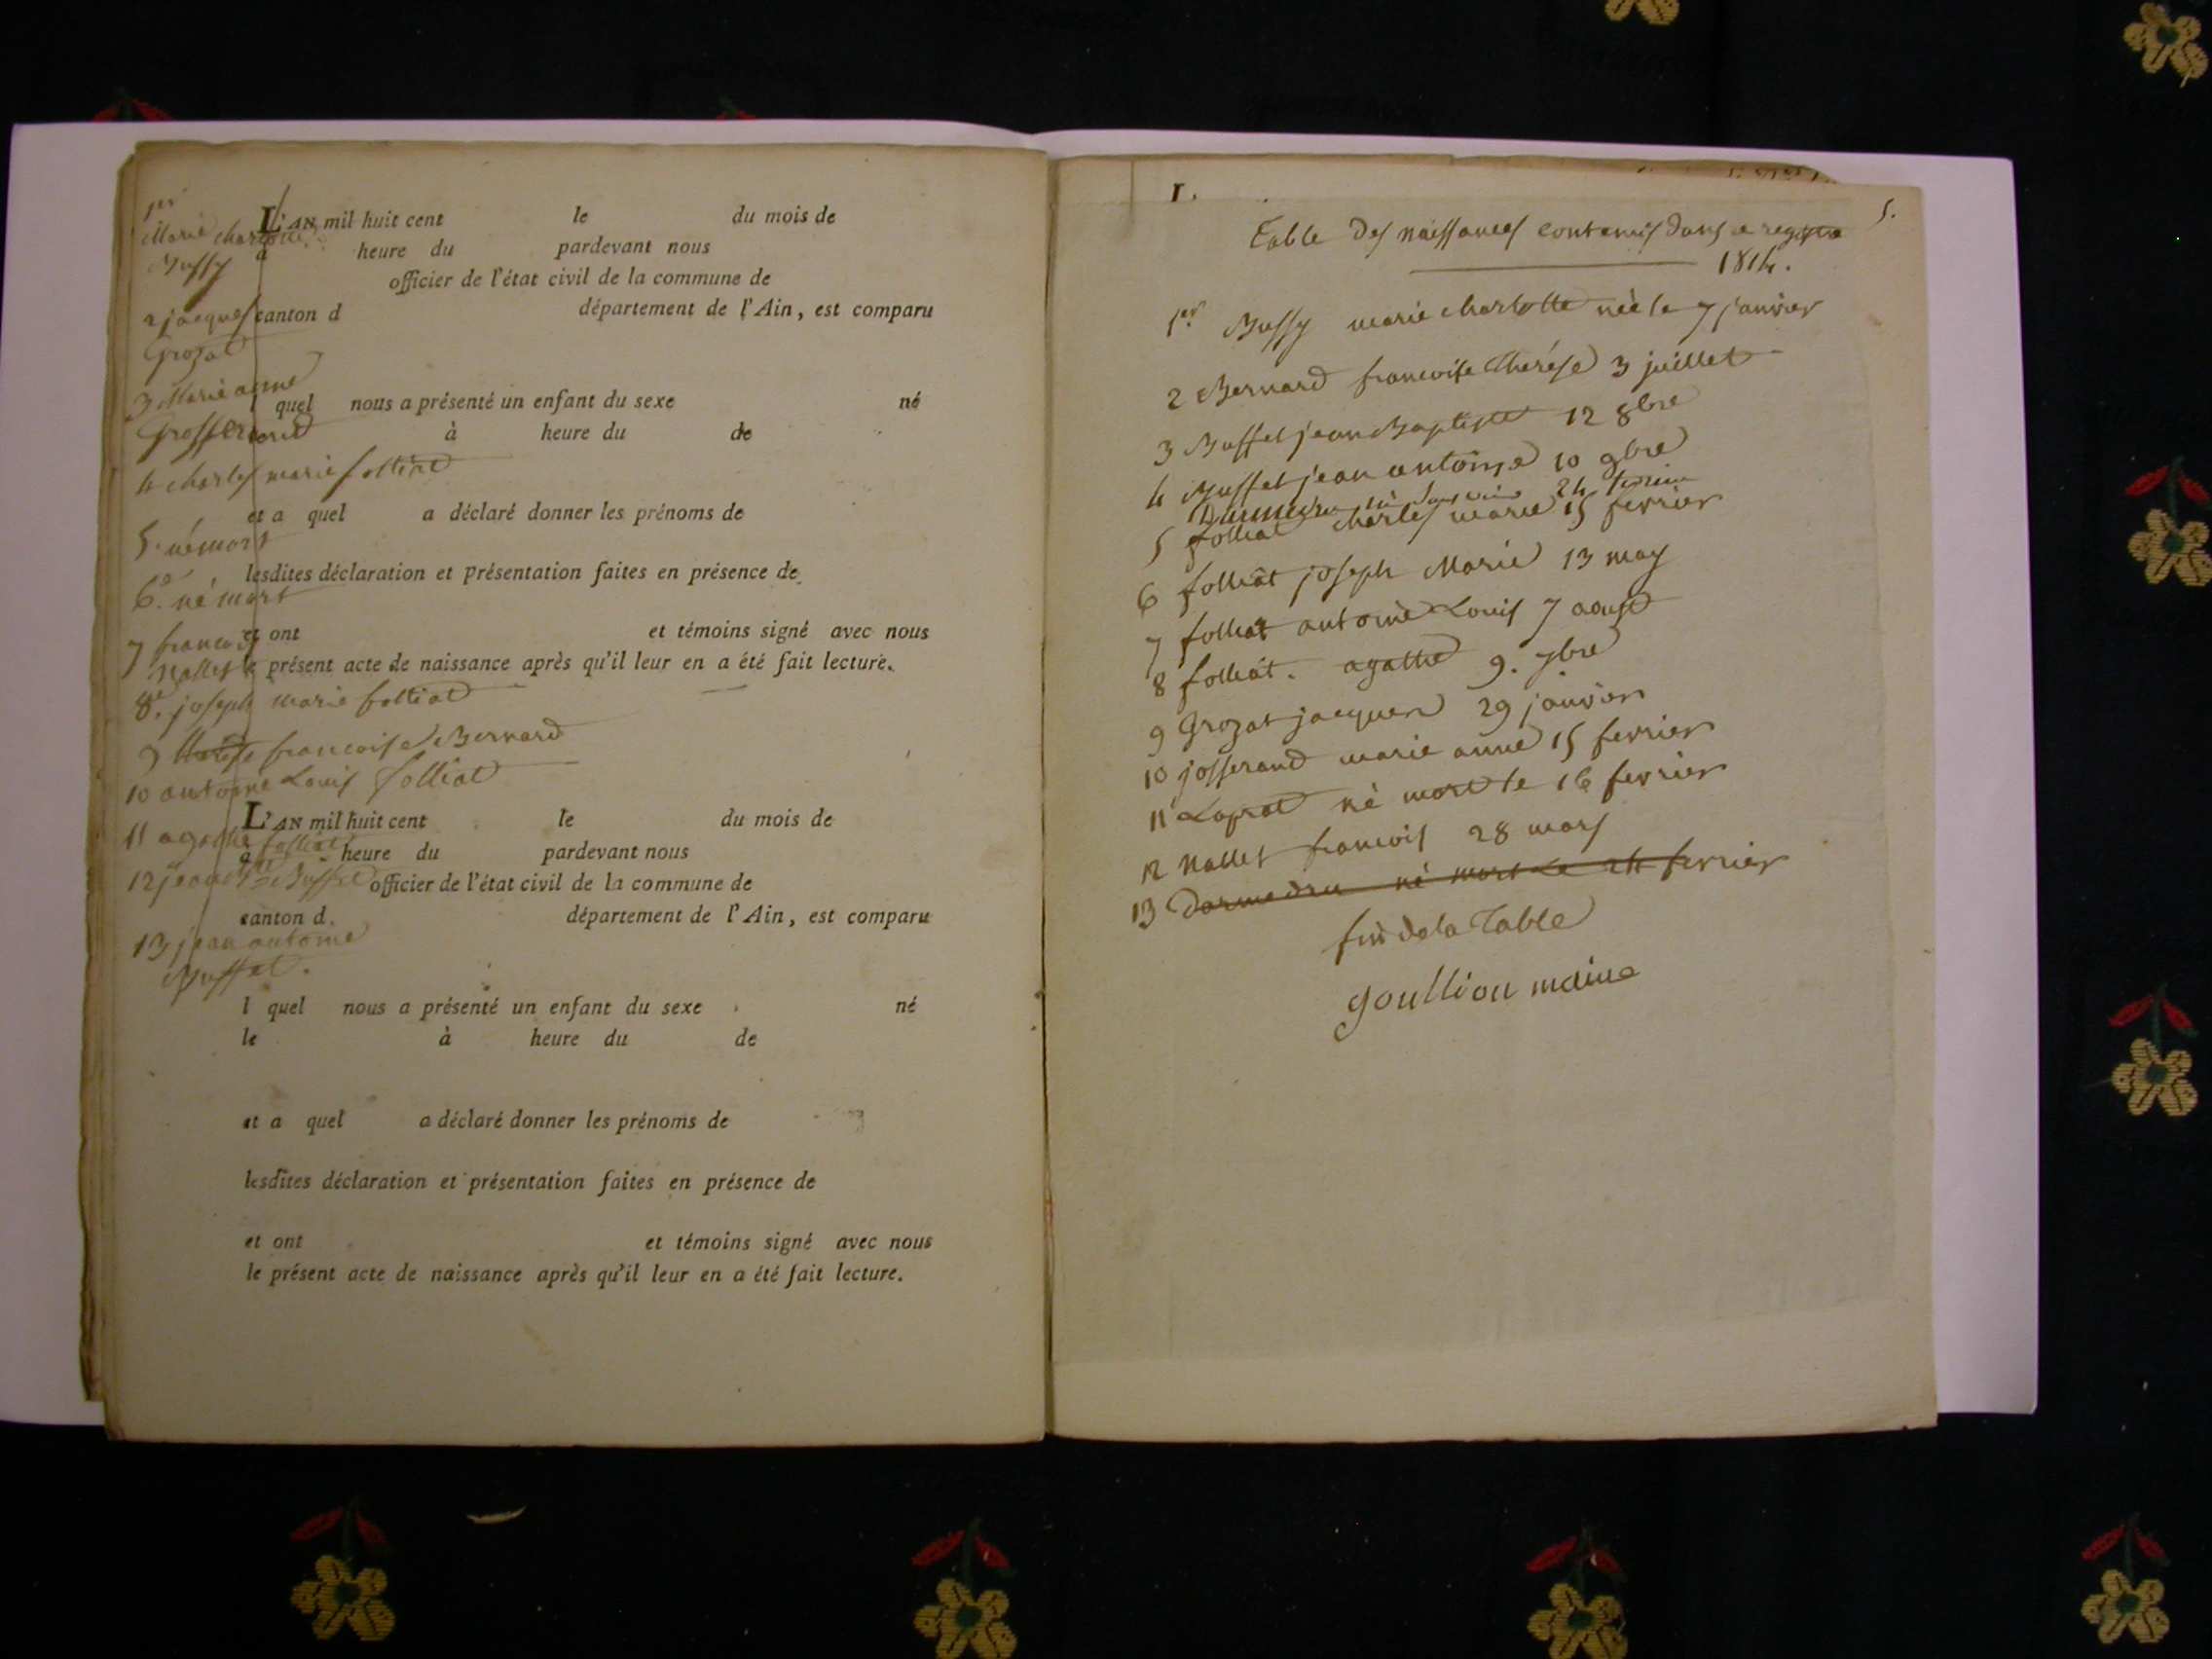 1er
Marie charlotte
Bussy
2 jacques
Grozat
3 Marie anne
Grosserand
4 charles marie folliat
5. né mort
6e. né mort
7 francois
Nallet
8e. joseph marie folliat
9 francoise Bernard
10 antoine Louis folliat
11 agathe folliat
12 jean Bte Buffet
13 jean antoine
Buffet.
L'AN mil huit cent le du mois de
à heure du pardevant nous
officier de l'état civil de la commune de
canton d département de l'Ain, est comparu
l quel nous a présenté un enfant du sexe né
à heure du de
et a quel a déclaré donner les prénoms de
lesdites déclaration et présentation faites en présence de
et ont et témoins signé avec nous
le présent acte de naissance après qu'il leur en a été fait lecture.
L'AN mil huit cent le du mois de
à heure du pardevant nous
officier de l'état civil de la commune de
canton d. département de l'Ain, est comparu
l quel nous a présenté un enfant du sexe né
le à heure du de
et a quel a déclaré donner les prénoms de
lesdites déclaration et présentation faites en présence de
et ont et témoins signé avec nous
le présent acte de naissance après qu'il leur en a été fait lecture.
5.
Table des naissances contenues dans ce registre
1814.
1er Bussy marie charlotte née le 7 janvier
2 Bernard francoise thérèse 3 juillet
3 Buffet jean Baptiste 12 8bre
4 Buffet jean antoine 10 9bre
24 fevrier
5 folliat charles marie 15 fevrier
6 folliat joseph Marie 13 may
7 folliat antoine Louis 7 aoust
8 folliat. agathe 9. 7bre
9 Grozat jacques 29 janvier
10 josserand marie anne 15 fevrier
11 Laprat né mort le 16 fevrier
12 Nallet francois 28 mars
13 Darmedru né mort le 24 fevrier
fin de la Table
goullion maire